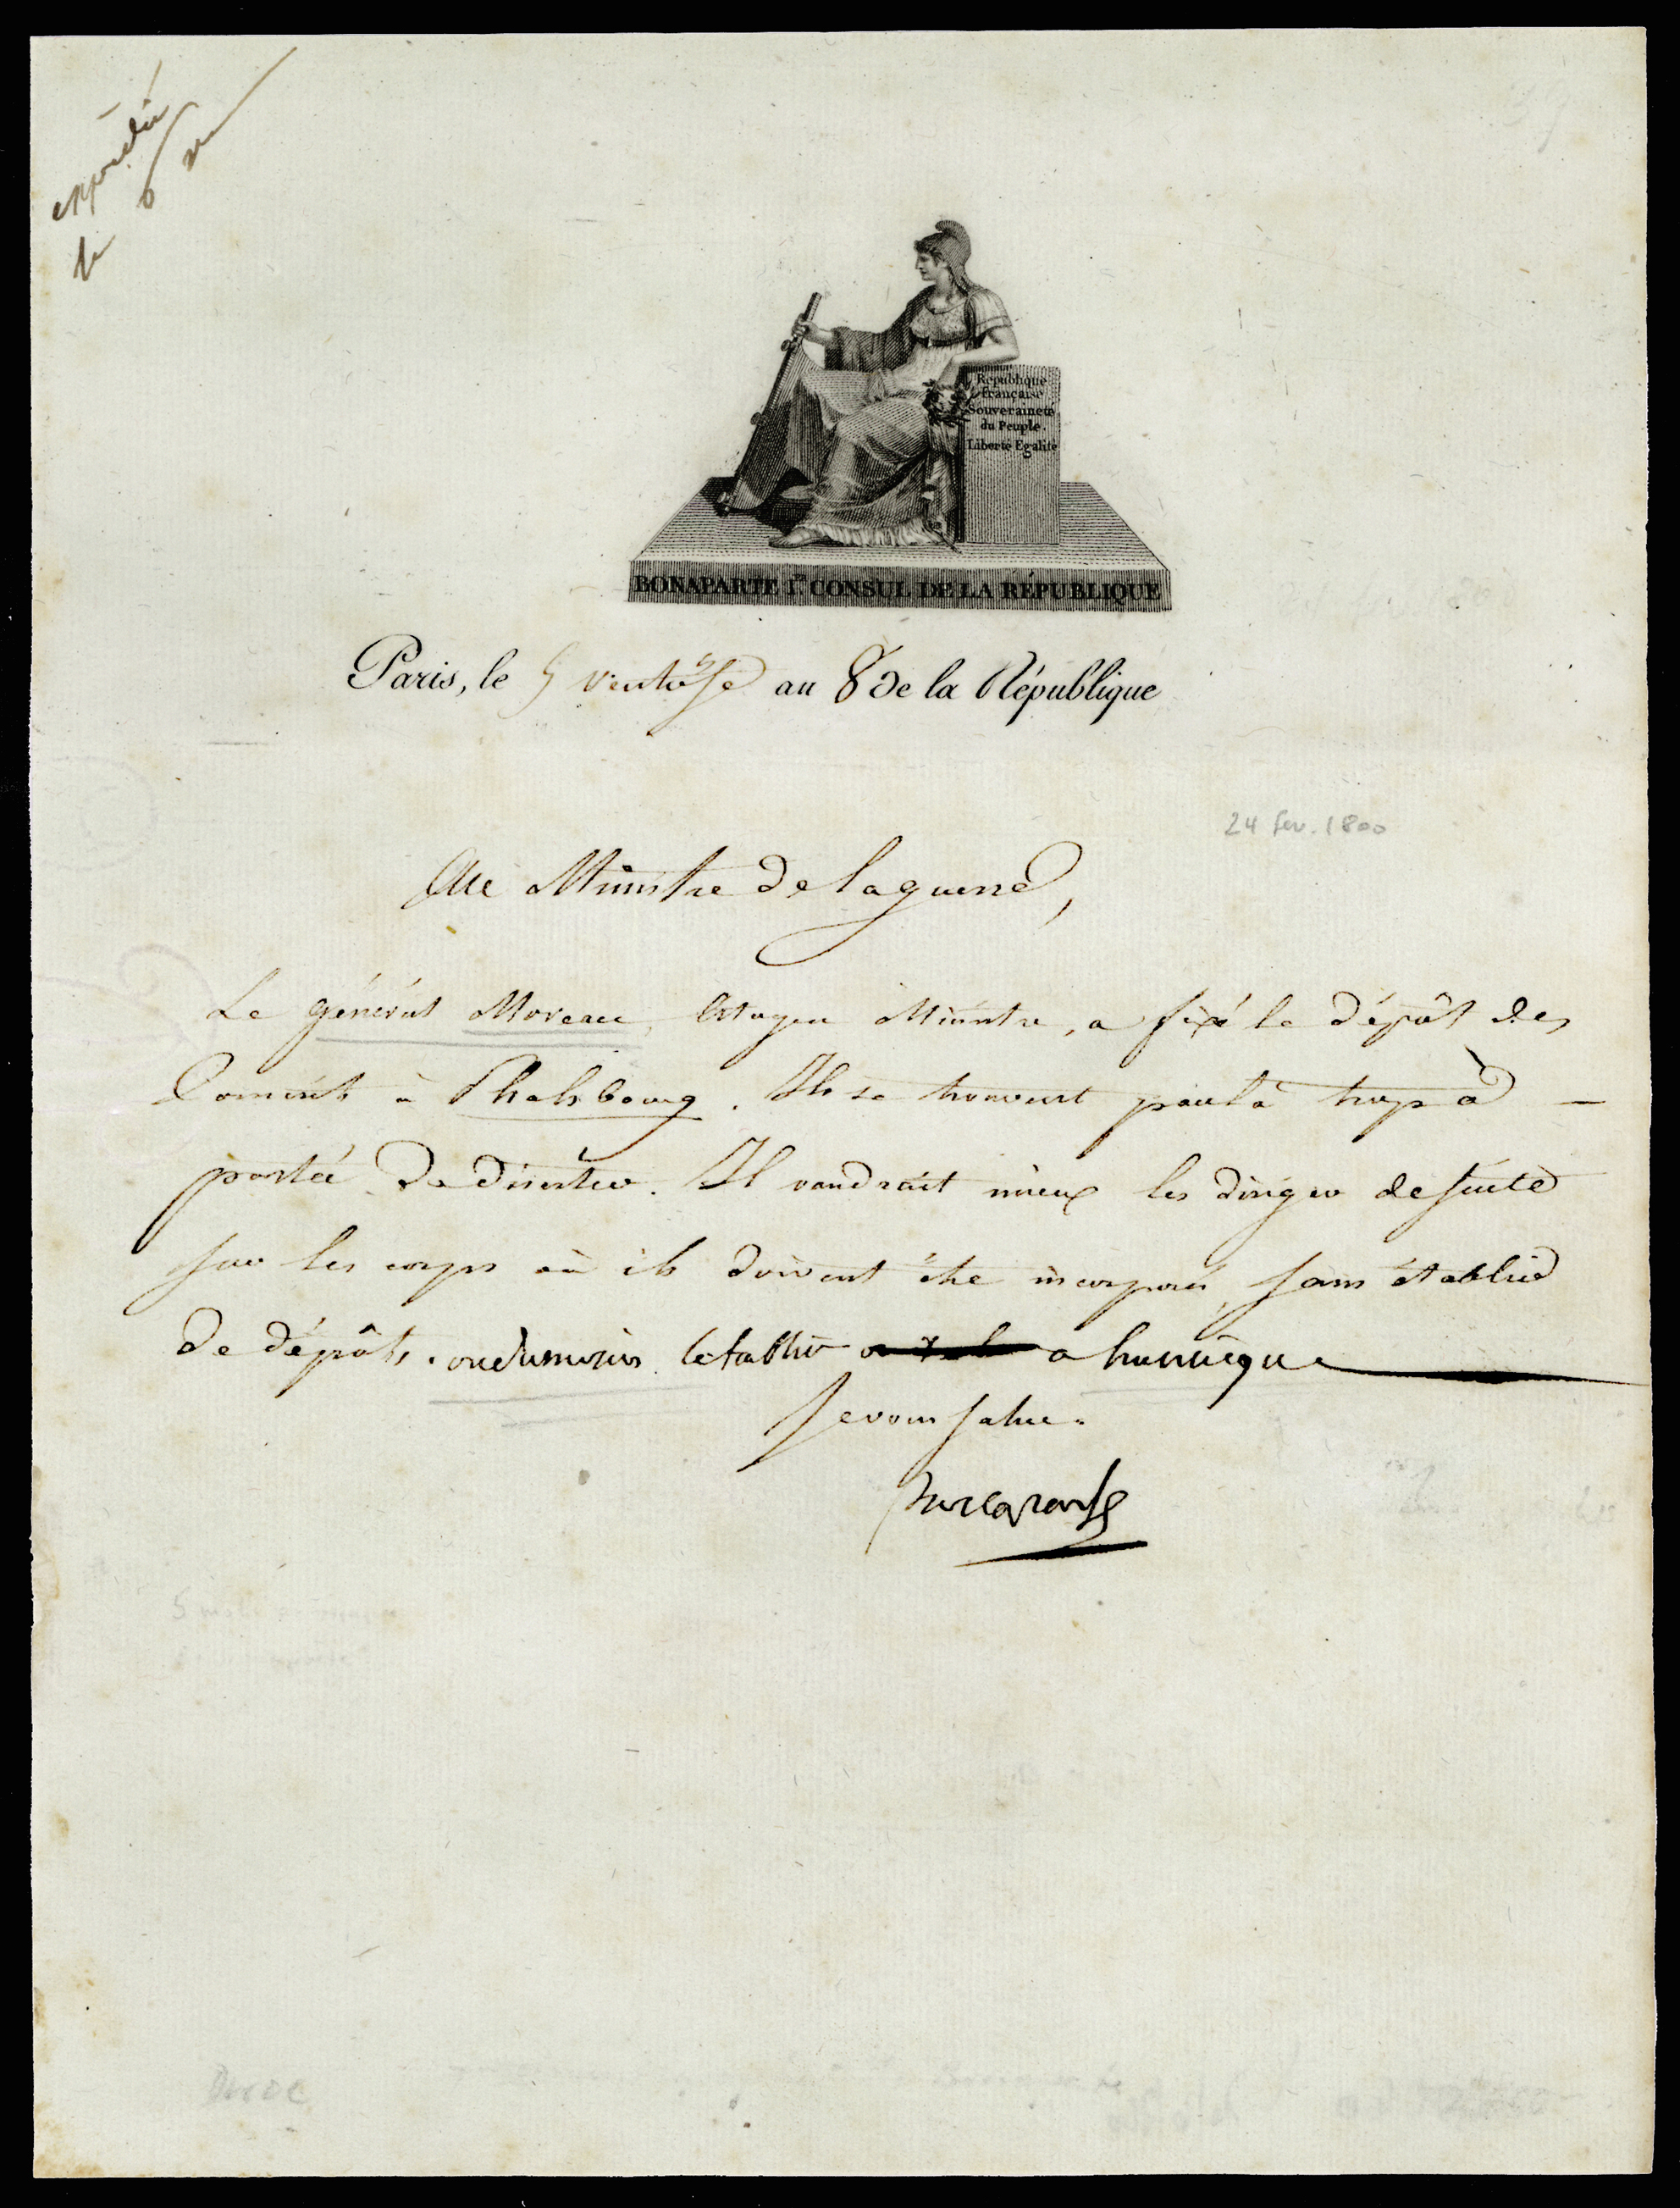 expédié
le 6 
République
Française
Souveraineté
du Peuple.
Liberté Egalité
BONAPARTE 1er CONSUL DE LA RÉPUBLIQUE
Paris, le 5 ventôse an 8 de la République
24 fev. 1800
Au Ministre de la guerre,
Le général Moreau, Citoyen Ministre, a fixé le dépôt des
Conscrits à Phalsbourg. Ils se trouvent par là trop à
portée de déserter. Il vaudrait mieux les diriger de suite
sur les corps où ils doivent être incorporés, sans établir
de dépôts. ou du moins l'etablir a huningue
Je vous salue.
Bonaparte
Duroc